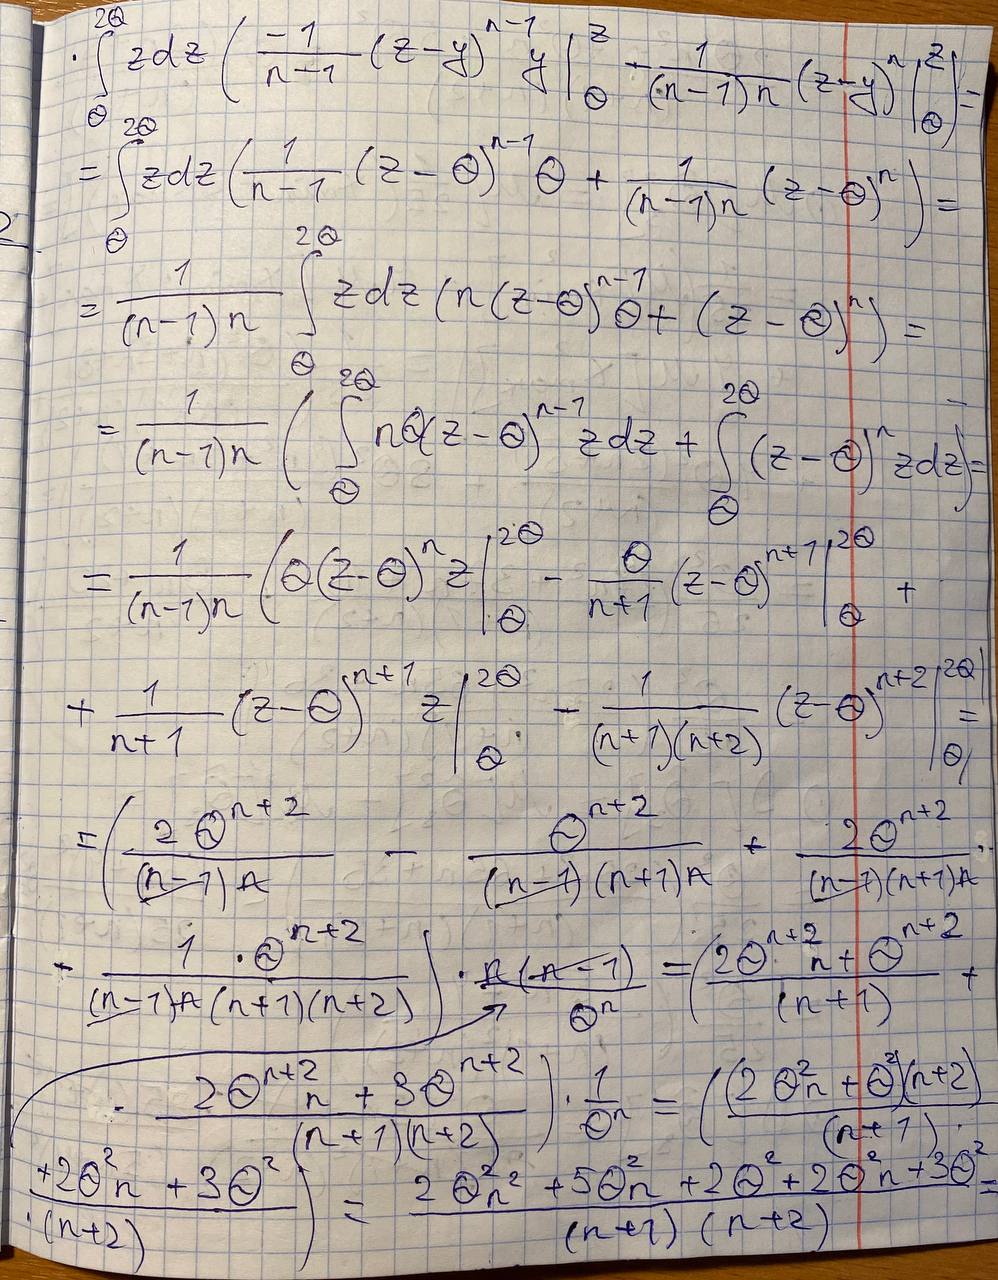 · ∫_θ^{2θ} z dz ( \frac{-1}{n-1} (z-y)^{n-1} y |_θ^z - \frac{1}{(n-1)n} (z-y)^n |_θ^z ) =
= ∫_θ^{2θ} z dz ( \frac{1}{n-1} (z-θ)^{n-1} θ + \frac{1}{(n-1)n} (z-θ)^n ) =
= \frac{1}{(n-1)n} ∫_θ^{2θ} z dz (n(z-θ)^{n-1} θ + (z-θ)^n) =
= \frac{1}{(n-1)n} ( ∫_θ^{2θ} nθ(z-θ)^{n-1} z dz + ∫_θ^{2θ} (z-θ)^n z dz ) =
= \frac{1}{(n-1)n} ( θ(z-θ)^n z |_θ^{2θ} - \frac{θ}{n+1} (z-θ)^{n+1} |_θ^{2θ} +
+ \frac{1}{n+1} (z-θ)^{n+1} z |_θ^{2θ} - \frac{1}{(n+1)(n+2)} (z-θ)^{n+2} |_θ^{2θ} ) =
= ( \frac{2θ^{n+2}}{(n-1)n} - \frac{θ^{n+2}}{(n-1)(n+1)n} + \frac{2θ^{n+2}}{(n-1)(n+1)n} -
- \frac{1·θ^{n+2}}{(n-1)n(n+1)(n+2)} ) · \frac{n(n-1)}{θ^n} = ( \frac{2θ^{n+2} n + θ^{n+2}}{(n+1)} +
· \frac{2θ^{n+2} n + 3θ^{n+2}}{(n+1)(n+2)} ) · \frac{1}{θ^n} = ( \frac{(2θ^2 n + θ^2)(n+2)}{(n+1) ·}
\frac{+2θ^2 n + 3θ^2}{·(n+2)} ) = \frac{2θ^2 n^2 + 5θ^2 n + 2θ^2 + 2θ^2 n + 3θ^2}{(n+1)(n+2)} =